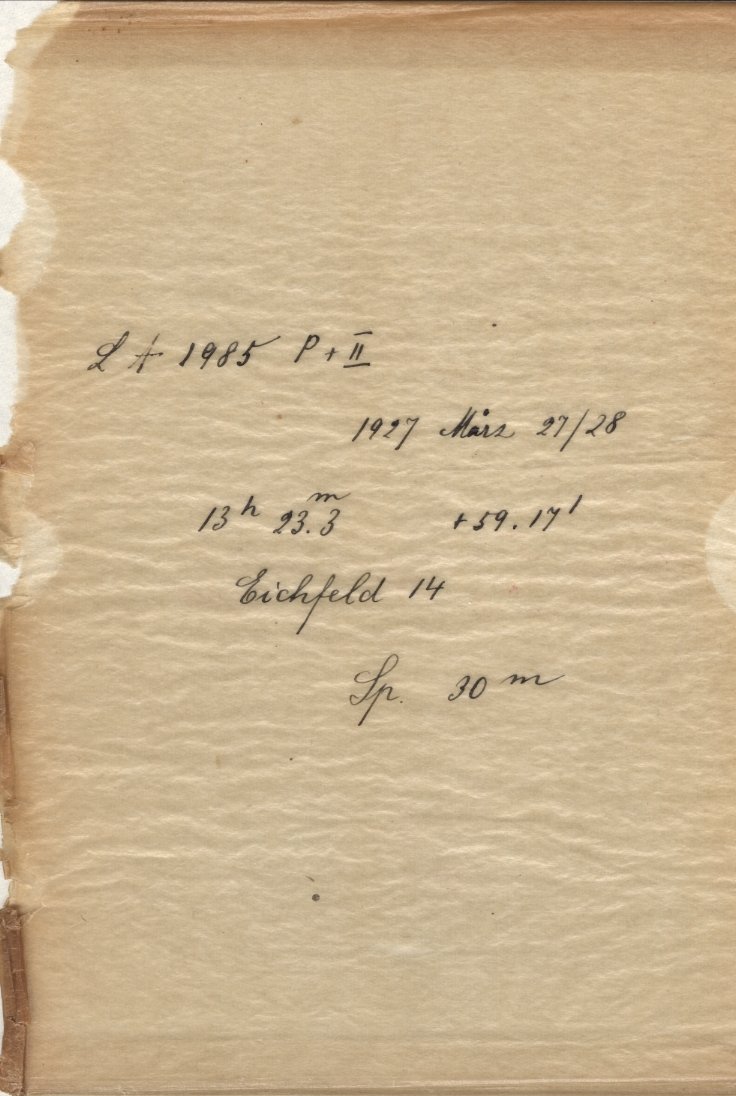 L A 1985 P + II
1927 März 27/28
13ʰ 23.3ᵐ +59.17'
Eichfeld 14
Sp. 30ᵐ